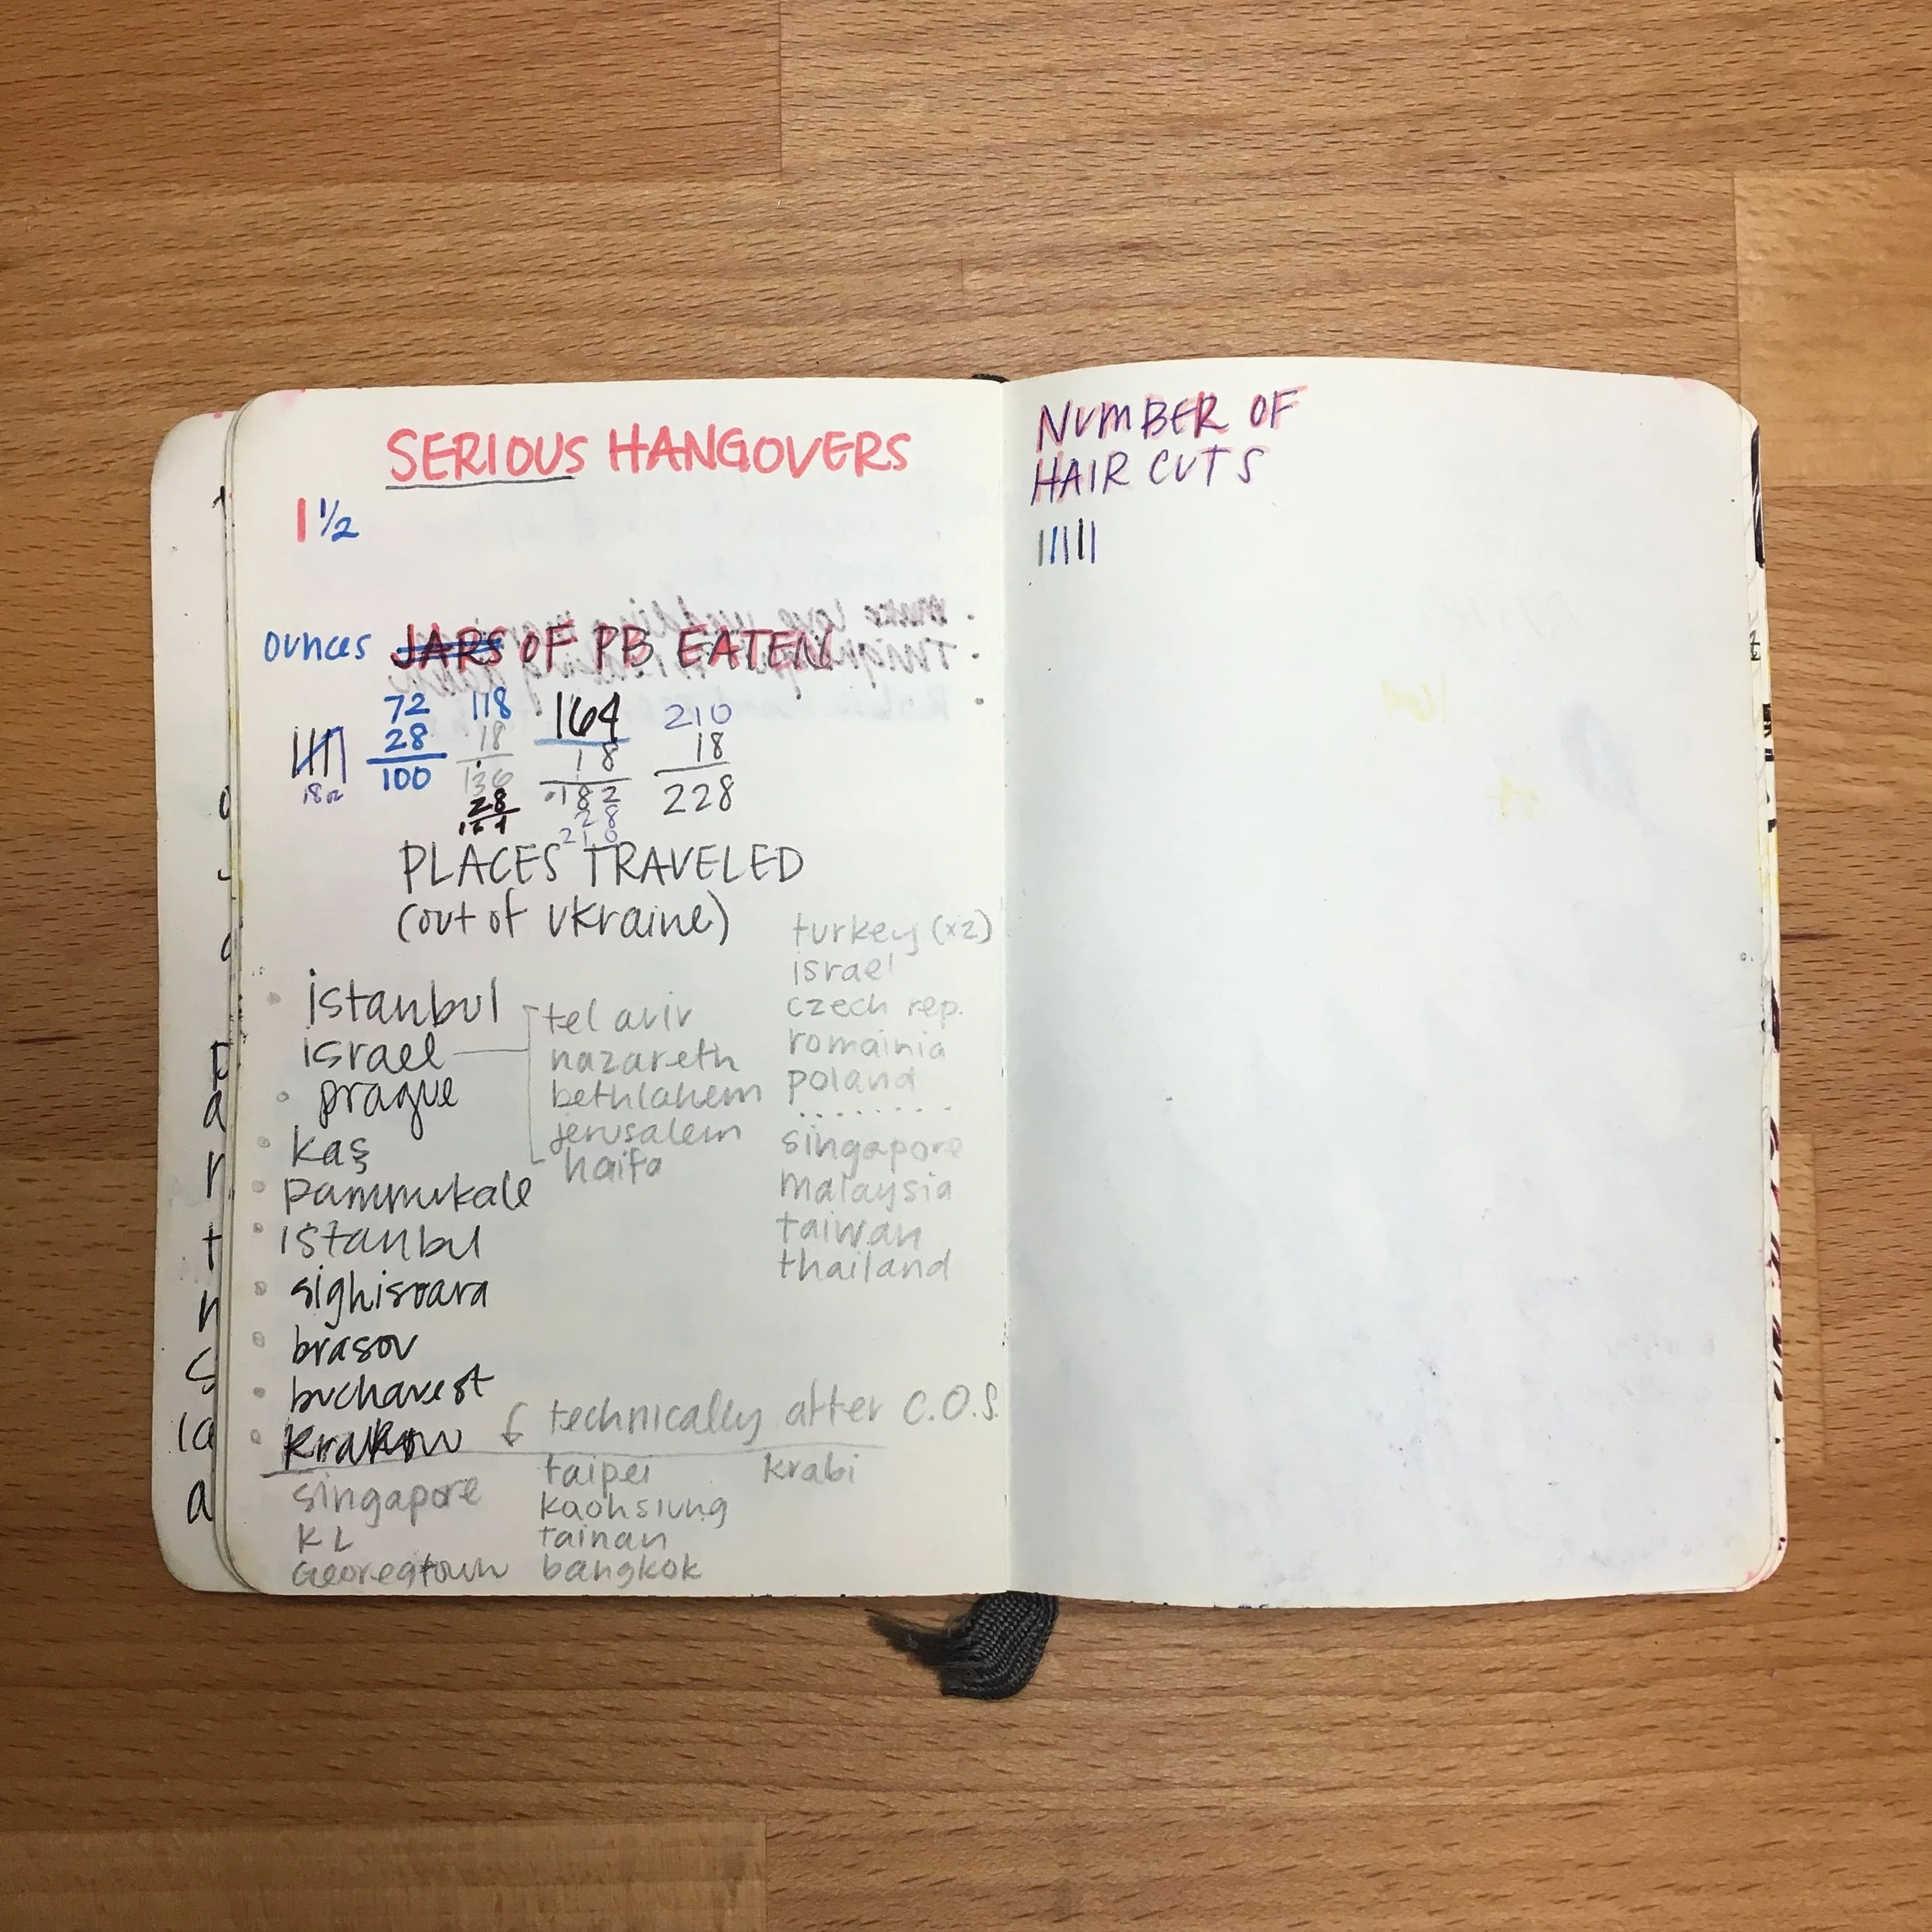 SERIOUS HANGOVERS
1 1/2
ounces JARS OF PB EATEN
18oz
72
28
100
118
18
136
28
164
164
18
182
28
210
210
18
228
PLACES TRAVELED
(out of Ukraine)
istanbul
israel
tel aviv
nazareth
bethlahem
jerusalem
haifa
prague
kaş
pammukale
istanbul
sighisoara
brasov
bucharest
Krakow
turkey (x2)
israel
czech rep.
romainia
poland
........
singapore
malaysia
taiwan
thailand
technically after C.O.S.
singapore
KL
Georegtown
taipei
kaohsiung
tainan
bangkok
krabi
NUMBER OF
HAIR CUTS